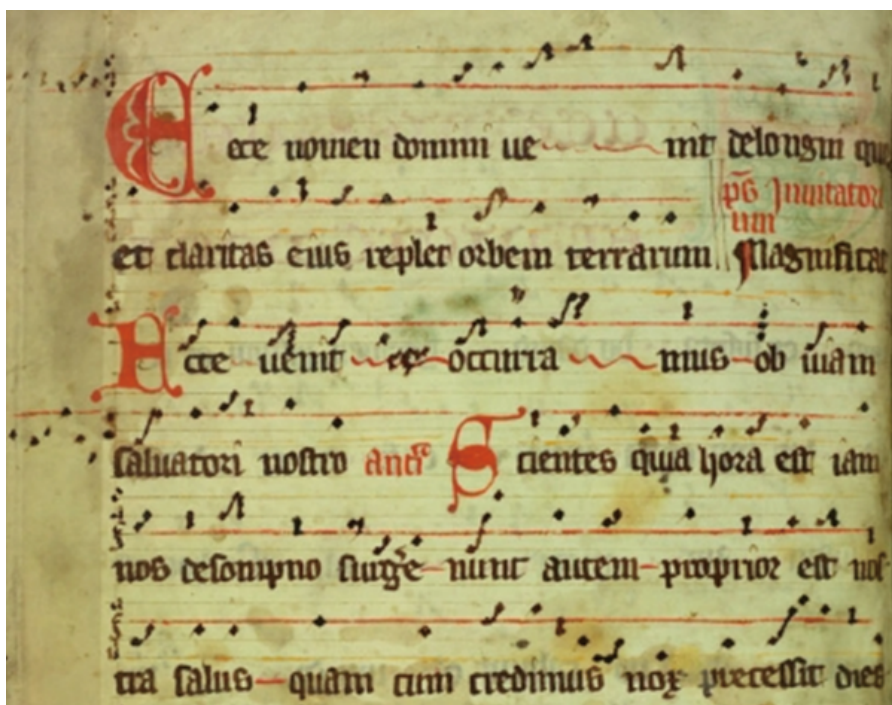 Ecce nomen domini ue nit delongin quo
p̄s Inuitatori
um
et claritas eius replet orbem terrarum Magnificat
Ecce uenit ex occurra mus ob uiam
saluatori nostro Scientes quia hora est iam
nos desompno surg̅e nunc autem proprior est nos
tra salus quam cum credimus nox precessit dies